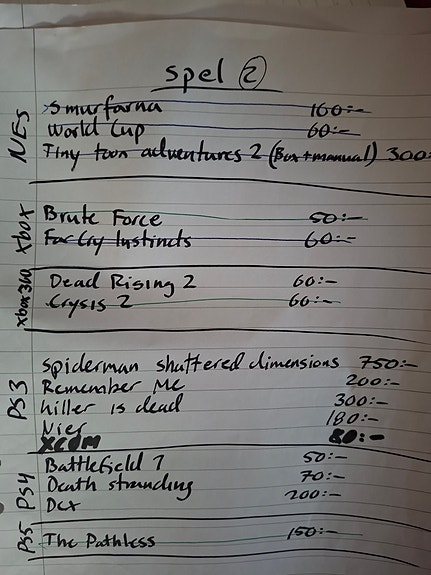 spel 2
NES
Smurfarna 160:-
World Cup 60:-
Tiny toon adventures 2 (Box+manual) 300:-
Xbox
Brute Force 50:-
Far Cry Instincts 60:-
Xbox 360
Dead Rising 2 60:-
Crysis 2 60:-
PS3
Spiderman shattered dimensions 750:-
Remember Me 200:-
killer is dead 300:-
Nier 180:-
XCOM 80:-
PS4
Battlefield 1 50:-
Death stranding 70:-
DCX 200:-
PS5
The Pathless 150:-